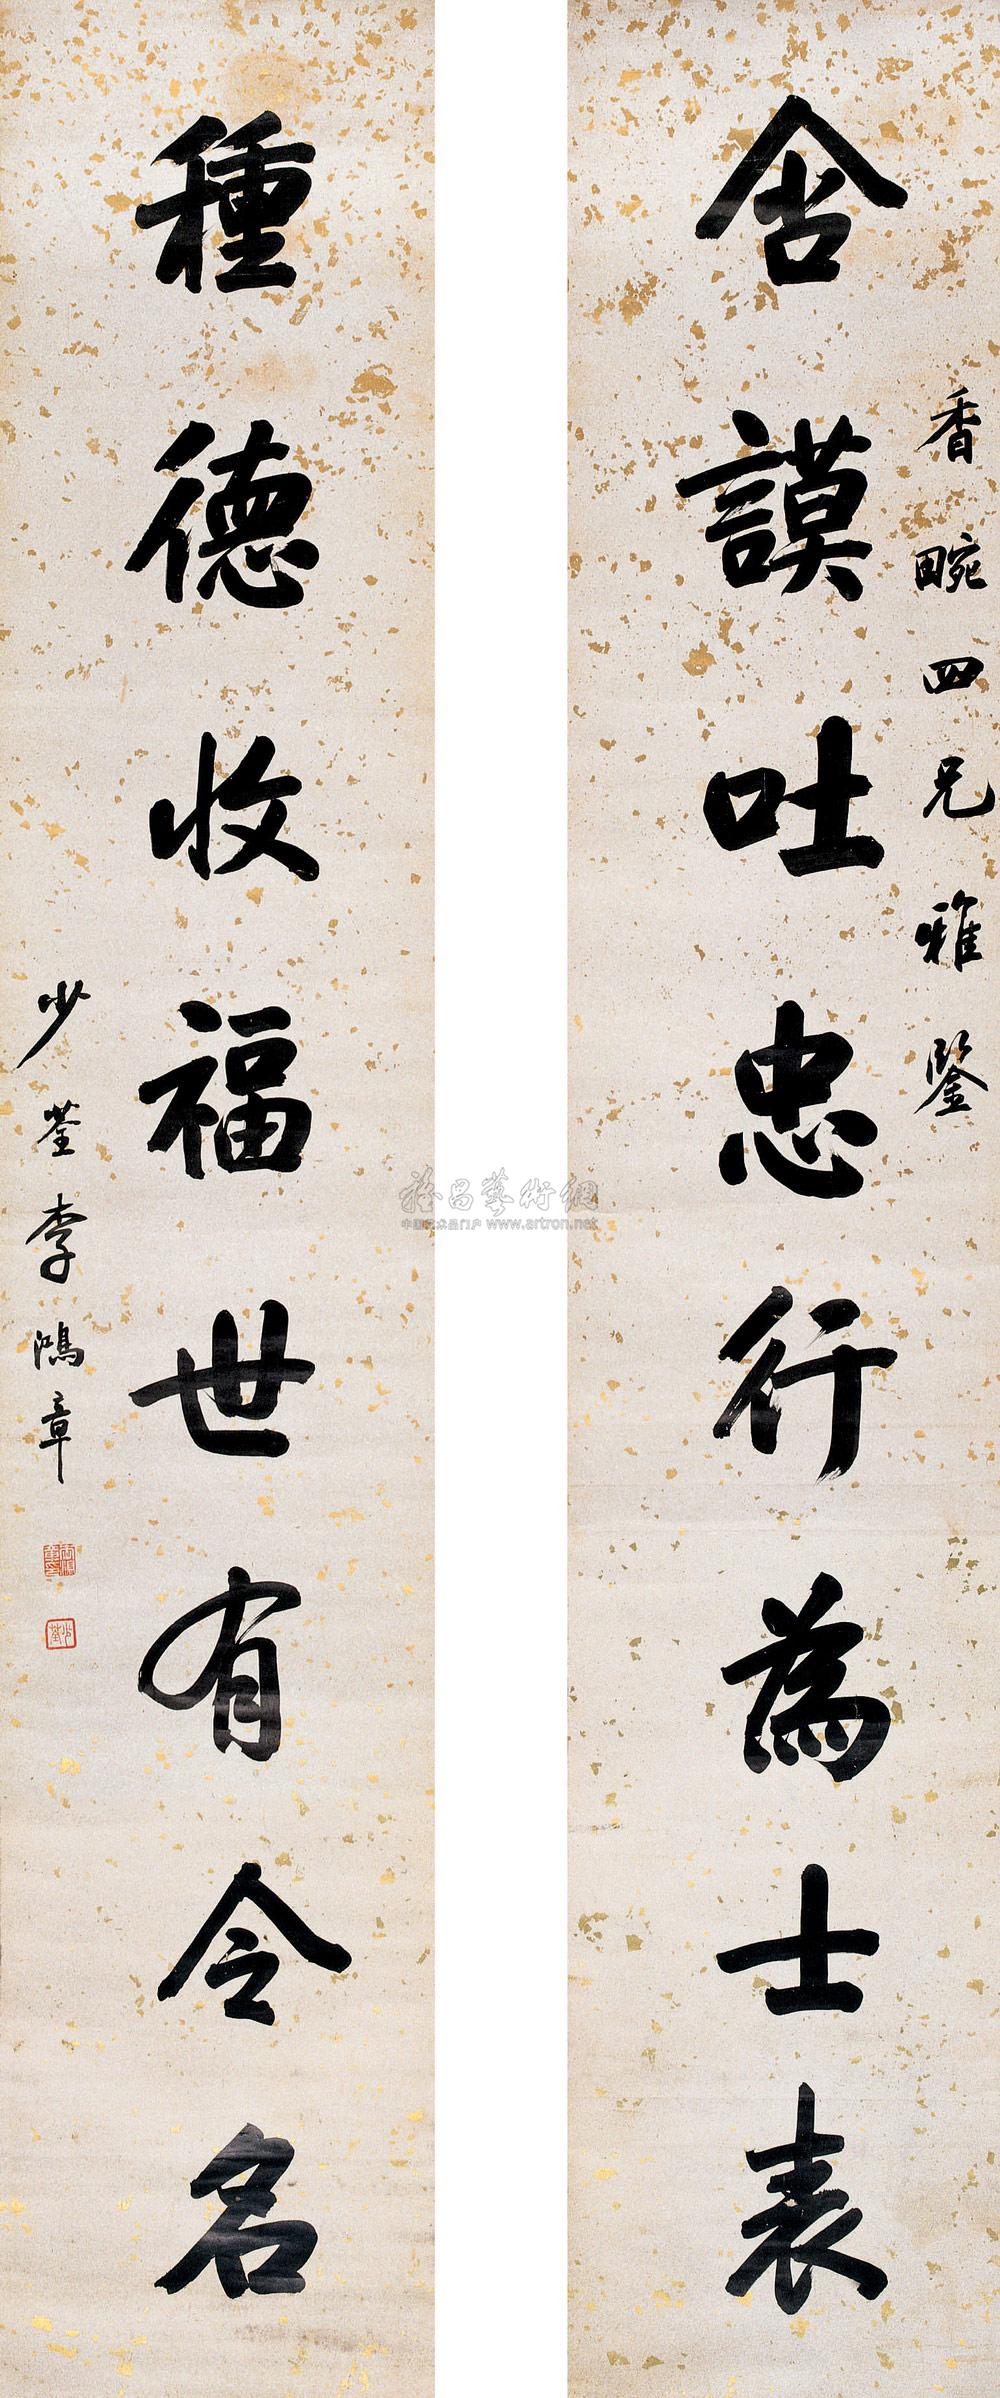 香畹四兄雅鑒
含謨吐忠行為士表
種德收福世有令名
少荃李鴻章
雅昌藝術網
中国艺术品门户 www.artron.net